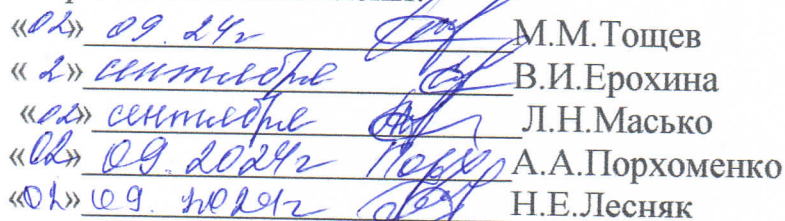 «02» 09. 24г М.М.Тощев
« 2» сентября В.И.Ерохина
«02» сентября Л.Н.Масько
«02» 09. 2024г А.А.Порхоменко
«02» 09. 2024г Н.Е.Лесняк